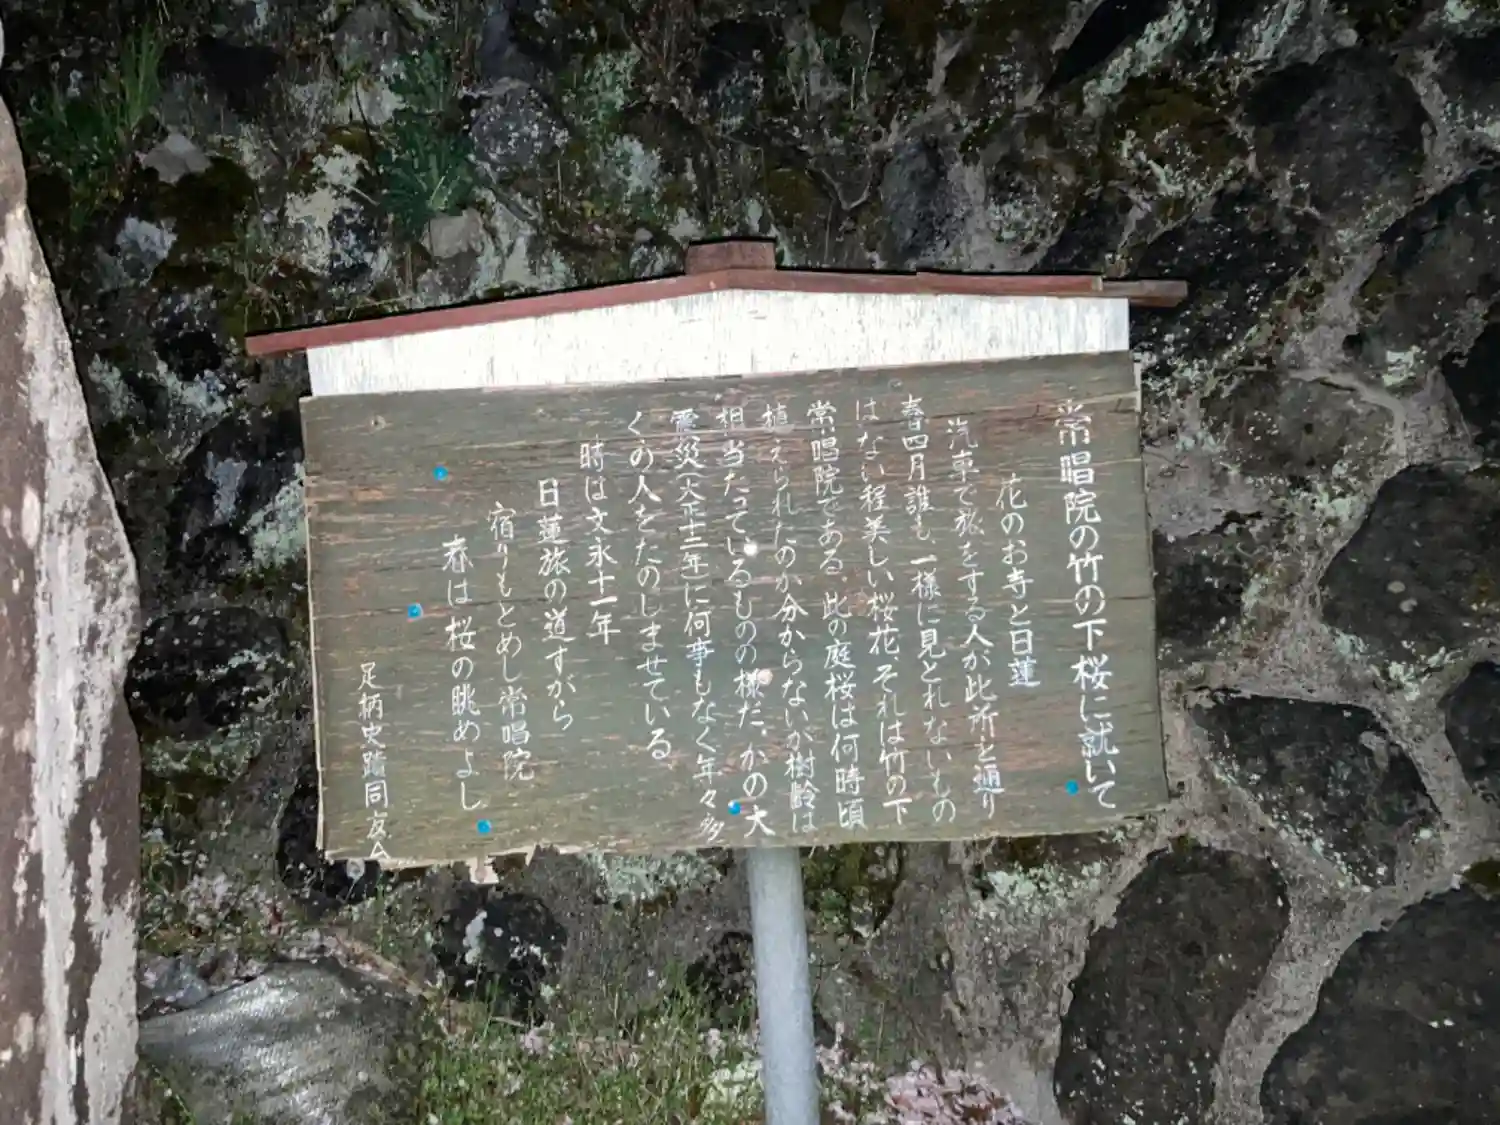 常唱院の竹の下桜に就いて
花のお寺と日蓮
汽車で旅をする人が此所を通り
春四月誰も一様に見とれないもの
はない程美しい桜花、それは竹の下
常唱院である、此の庭桜は何時頃
植えられたのか分からないが樹齢は
相当たっているものの様だ、かの大
震災(大正十二年)に何事もなく年々多
くの人をたのしませている、
時は文永十一年
日蓮旅の道すがら
宿りもとめし常唱院
春は桜の眺めよし
足柄史蹟同友会